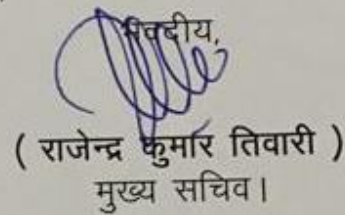 भवदीय,
( राजेन्द्र कुमार तिवारी )
मुख्य सचिव।